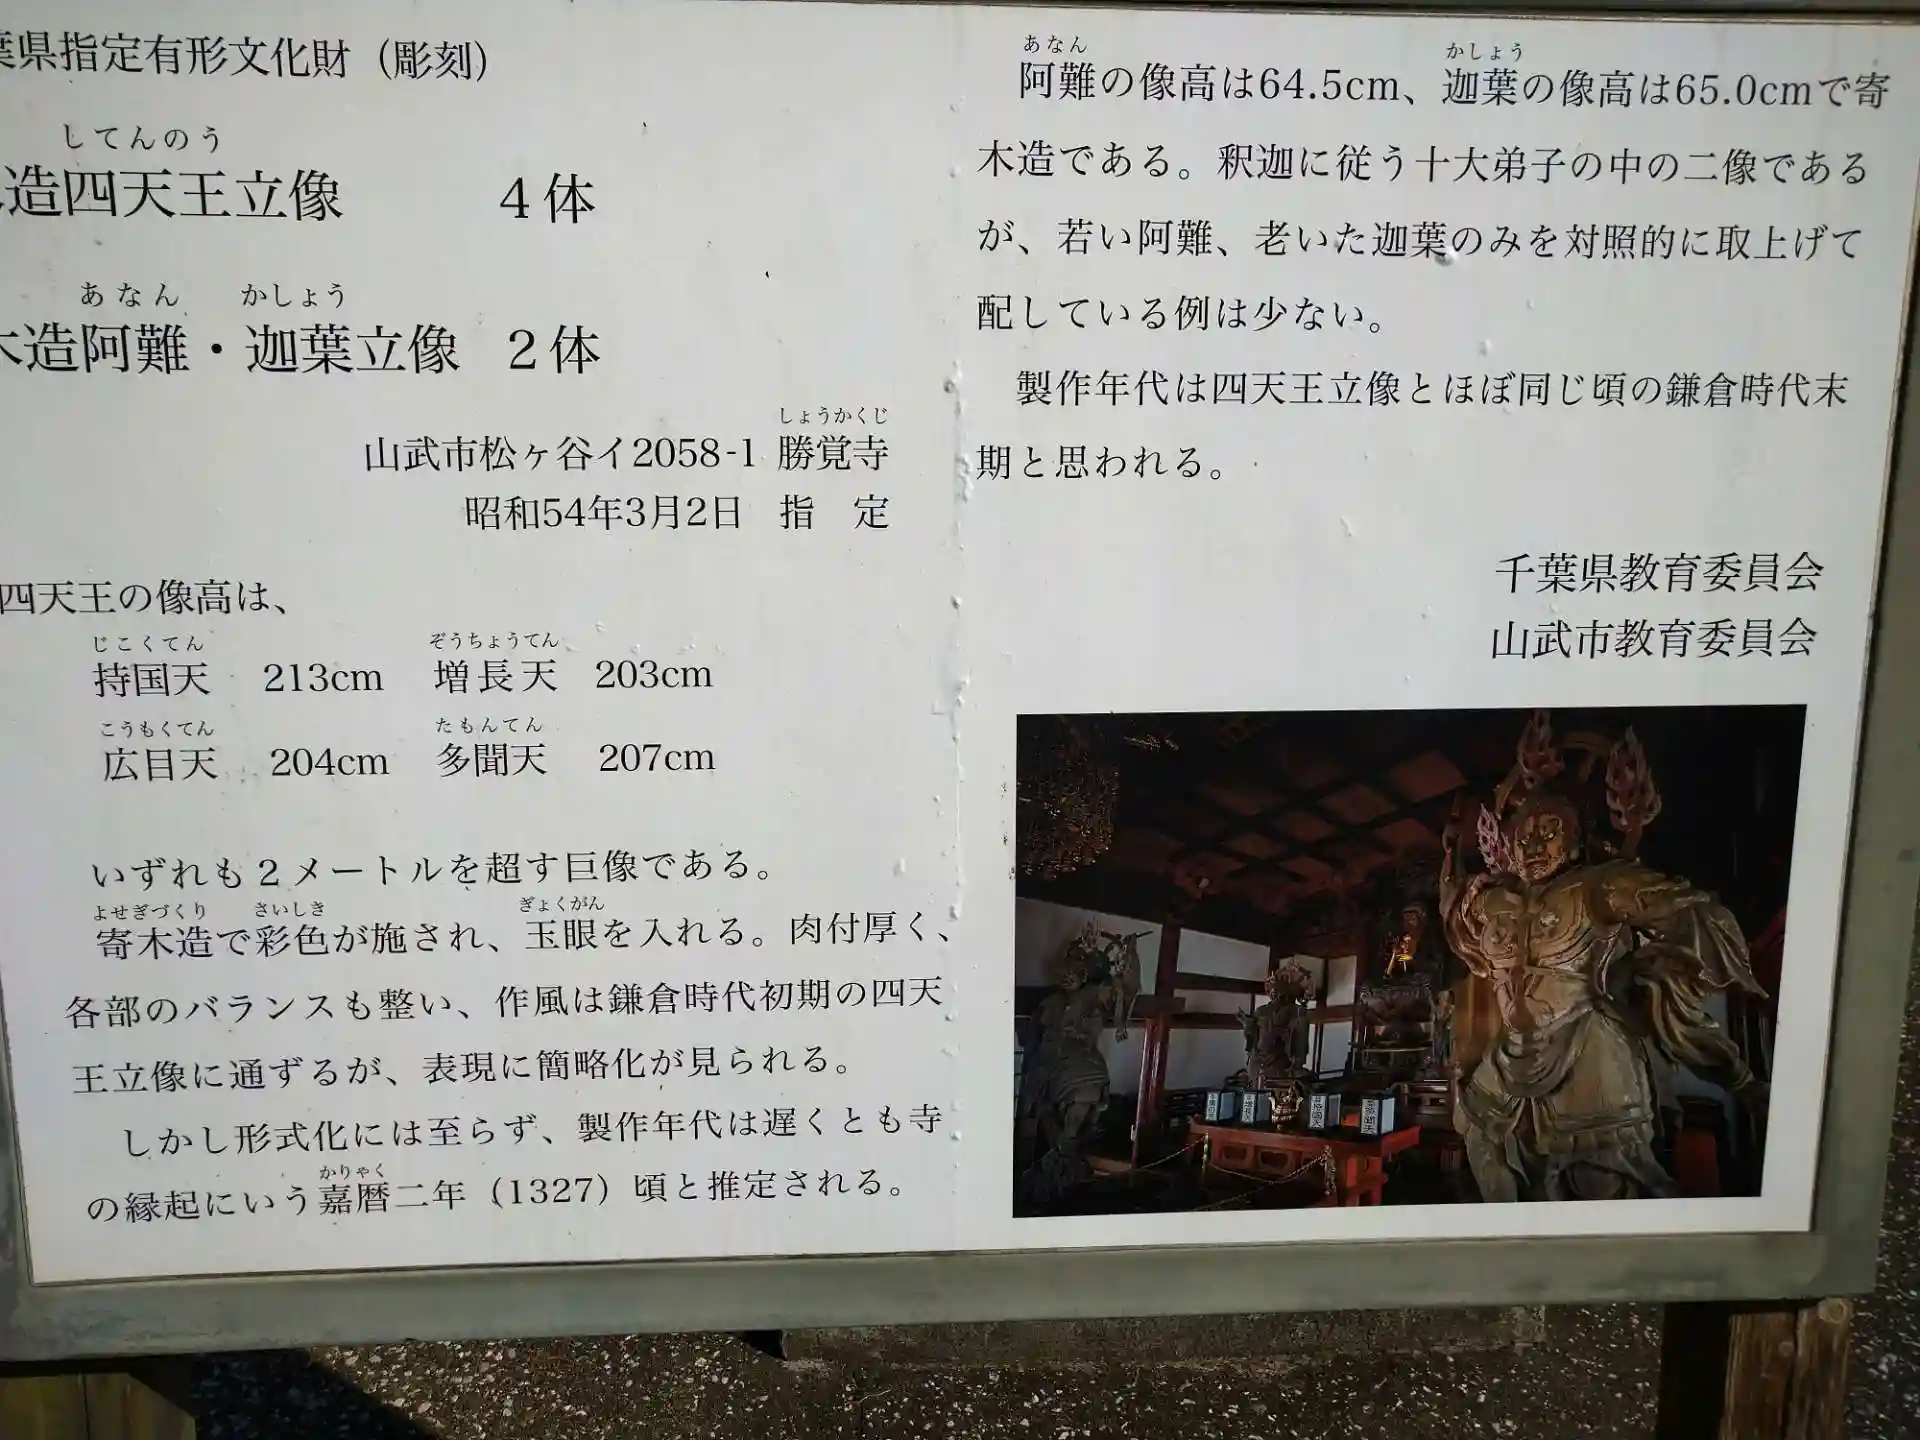 葉県指定有形文化財（彫刻）
してんのう
造四天王立像　４体
あなん　かしょう
木造阿難・迦葉立像　２体
しょうかくじ
山武市松ヶ谷イ2058-1 勝覚寺
昭和54年3月2日　指　定
四天王の像高は、
じこくてん　ぞうちょうてん
持国天　213cm　増長天　203cm
こうもくてん　たもんてん
広目天　204cm　多聞天　207cm
いずれも２メートルを超す巨像である。
よせぎづくり　さいしき　ぎょくがん
寄木造で彩色が施され、玉眼を入れる。肉付厚く、
各部のバランスも整い、作風は鎌倉時代初期の四天
王立像に通ずるが、表現に簡略化が見られる。
しかし形式化には至らず、製作年代は遅くとも寺
かりゃく
の縁起にいう嘉暦二年（1327）頃と推定される。
あなん　かしょう
阿難の像高は64.5cm、迦葉の像高は65.0cmで寄
木造である。釈迦に従う十大弟子の中の二像である
が、若い阿難、老いた迦葉のみを対照的に取上げて
配している例は少ない。
製作年代は四天王立像とほぼ同じ頃の鎌倉時代末
期と思われる。
千葉県教育委員会
山武市教育委員会